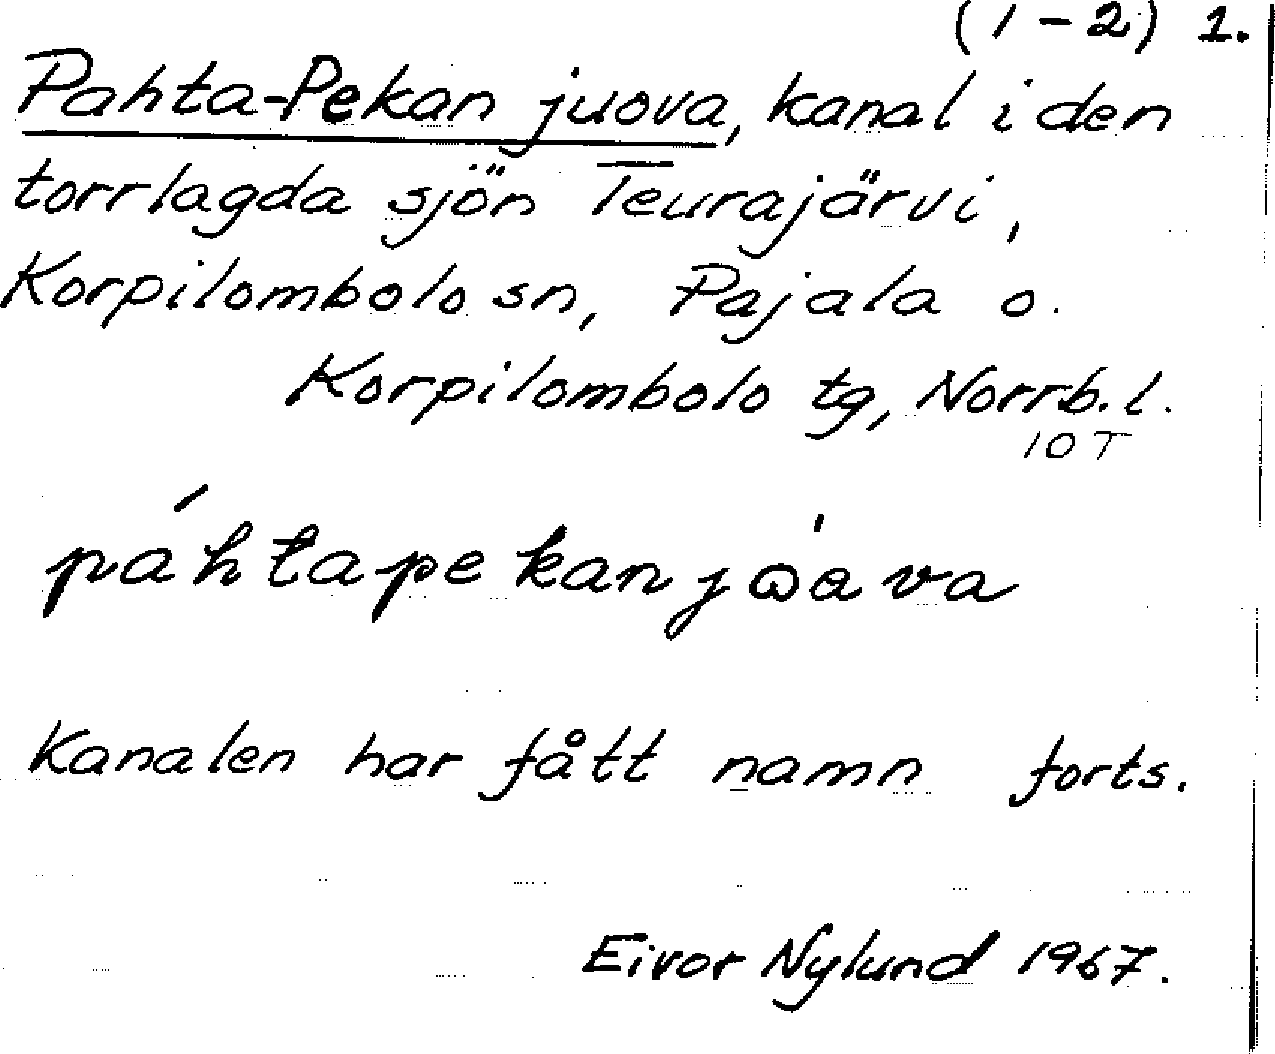 (1-2) 1.
Pahta-Pekan juova, kanal i den
torrlagda sjön Teurajärvi,
Korpilombolo sn, Pajala o.
Korpilombolo tg, Norrb. l.
10 T
Kanalen har fått namn forts.
Eivor Nylund 1967.